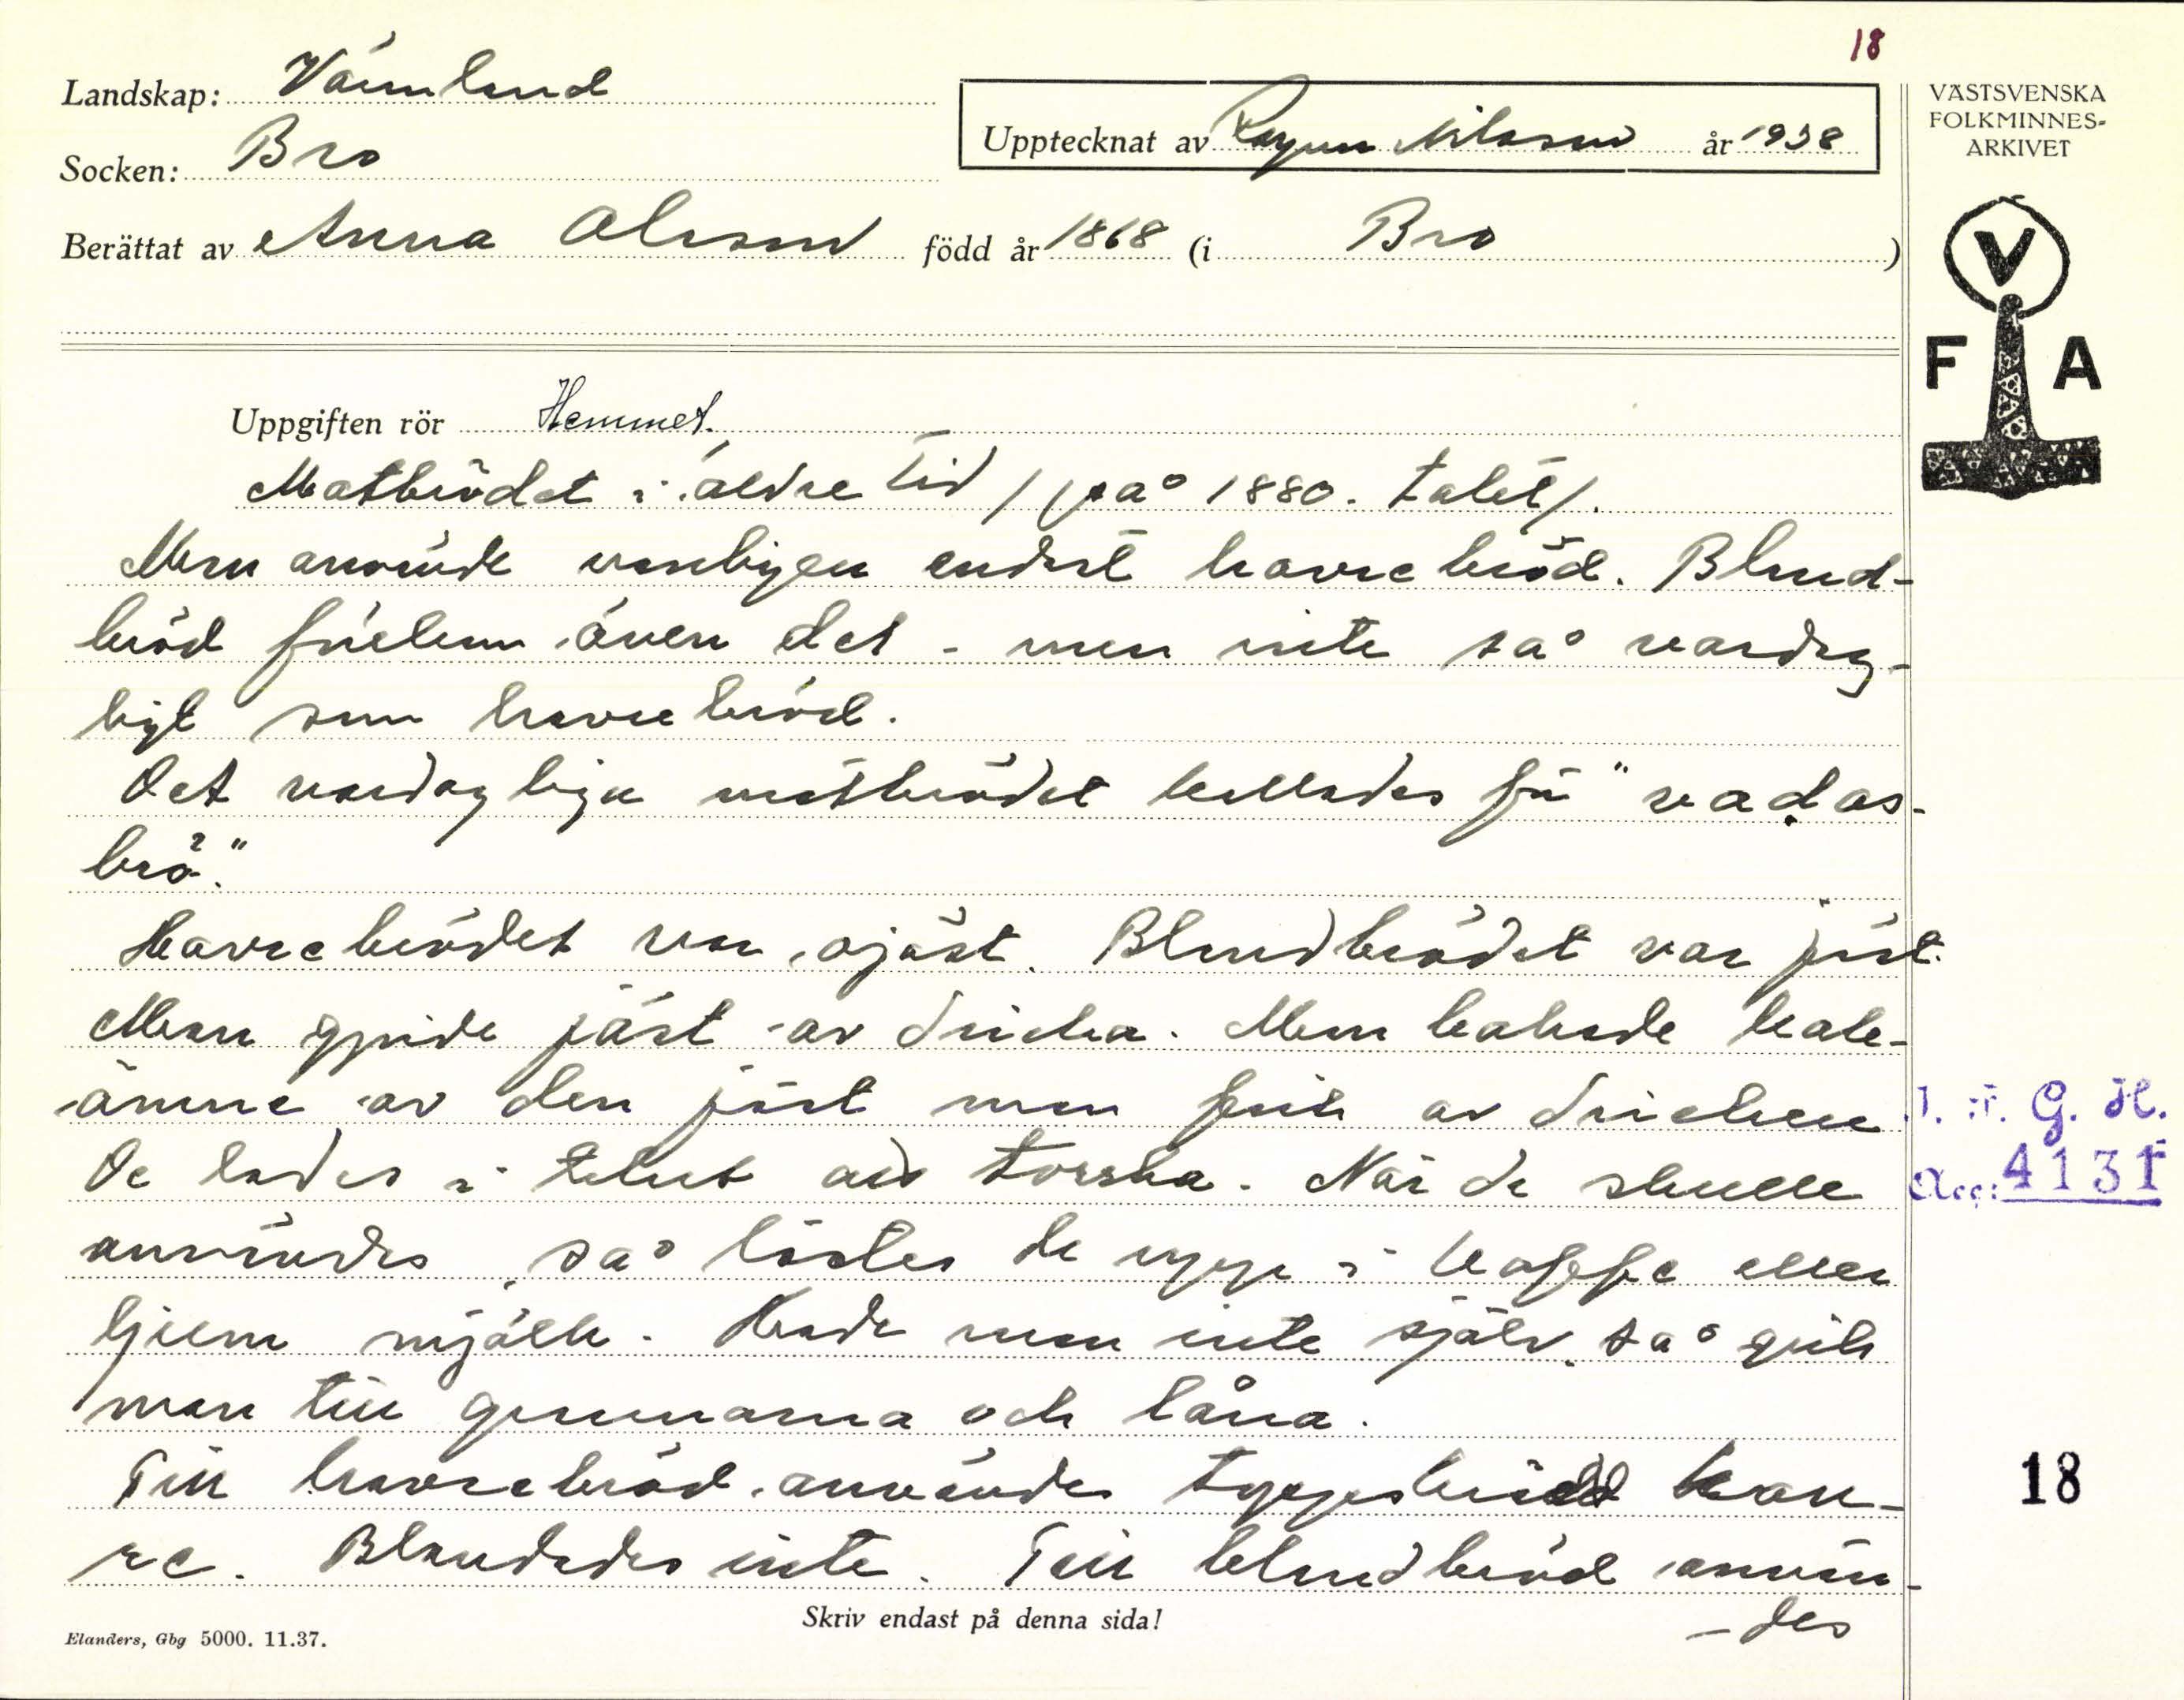 18
Landskap: Värmland
Socken: Bro
Upptecknat av Ragnar Nilsson år 1938
Berättat av Anna Olsson född år 1868 (i Bro )
VÄSTSVENSKA
FOLKMINNES-
ARKIVET
V
F A
Uppgiften rör Hemmet.
Matbrödet i äldre tid / på 1880. talet /.
Man använde vanligen endast havrebröd. Bland-
bröd förekom även det - men inte så vardag-
ligt som havrebröd.
Det vardagliga matbrödet kallades för "vadas-
brö."
Havrebrödet var ojäst. Blandbrödet var jäst.
Man gjorde jäst av dricka. Man bakade kak-
ämne av den jäst man fick av drickan
De lades i taket att torka. När de skulle
användes, så löstes de upp i kaffe eller
ljum mjölk. Hade man inte själv, så gick
man till grannarna och låna.
Till havrebröd användes havre. Blandades inte. Till blandbröd använ-
-des
I. F. G. H.
Acc: 4131
18
Skriv endast på denna sida!
Elanders, Gbg 5000. 11.37.